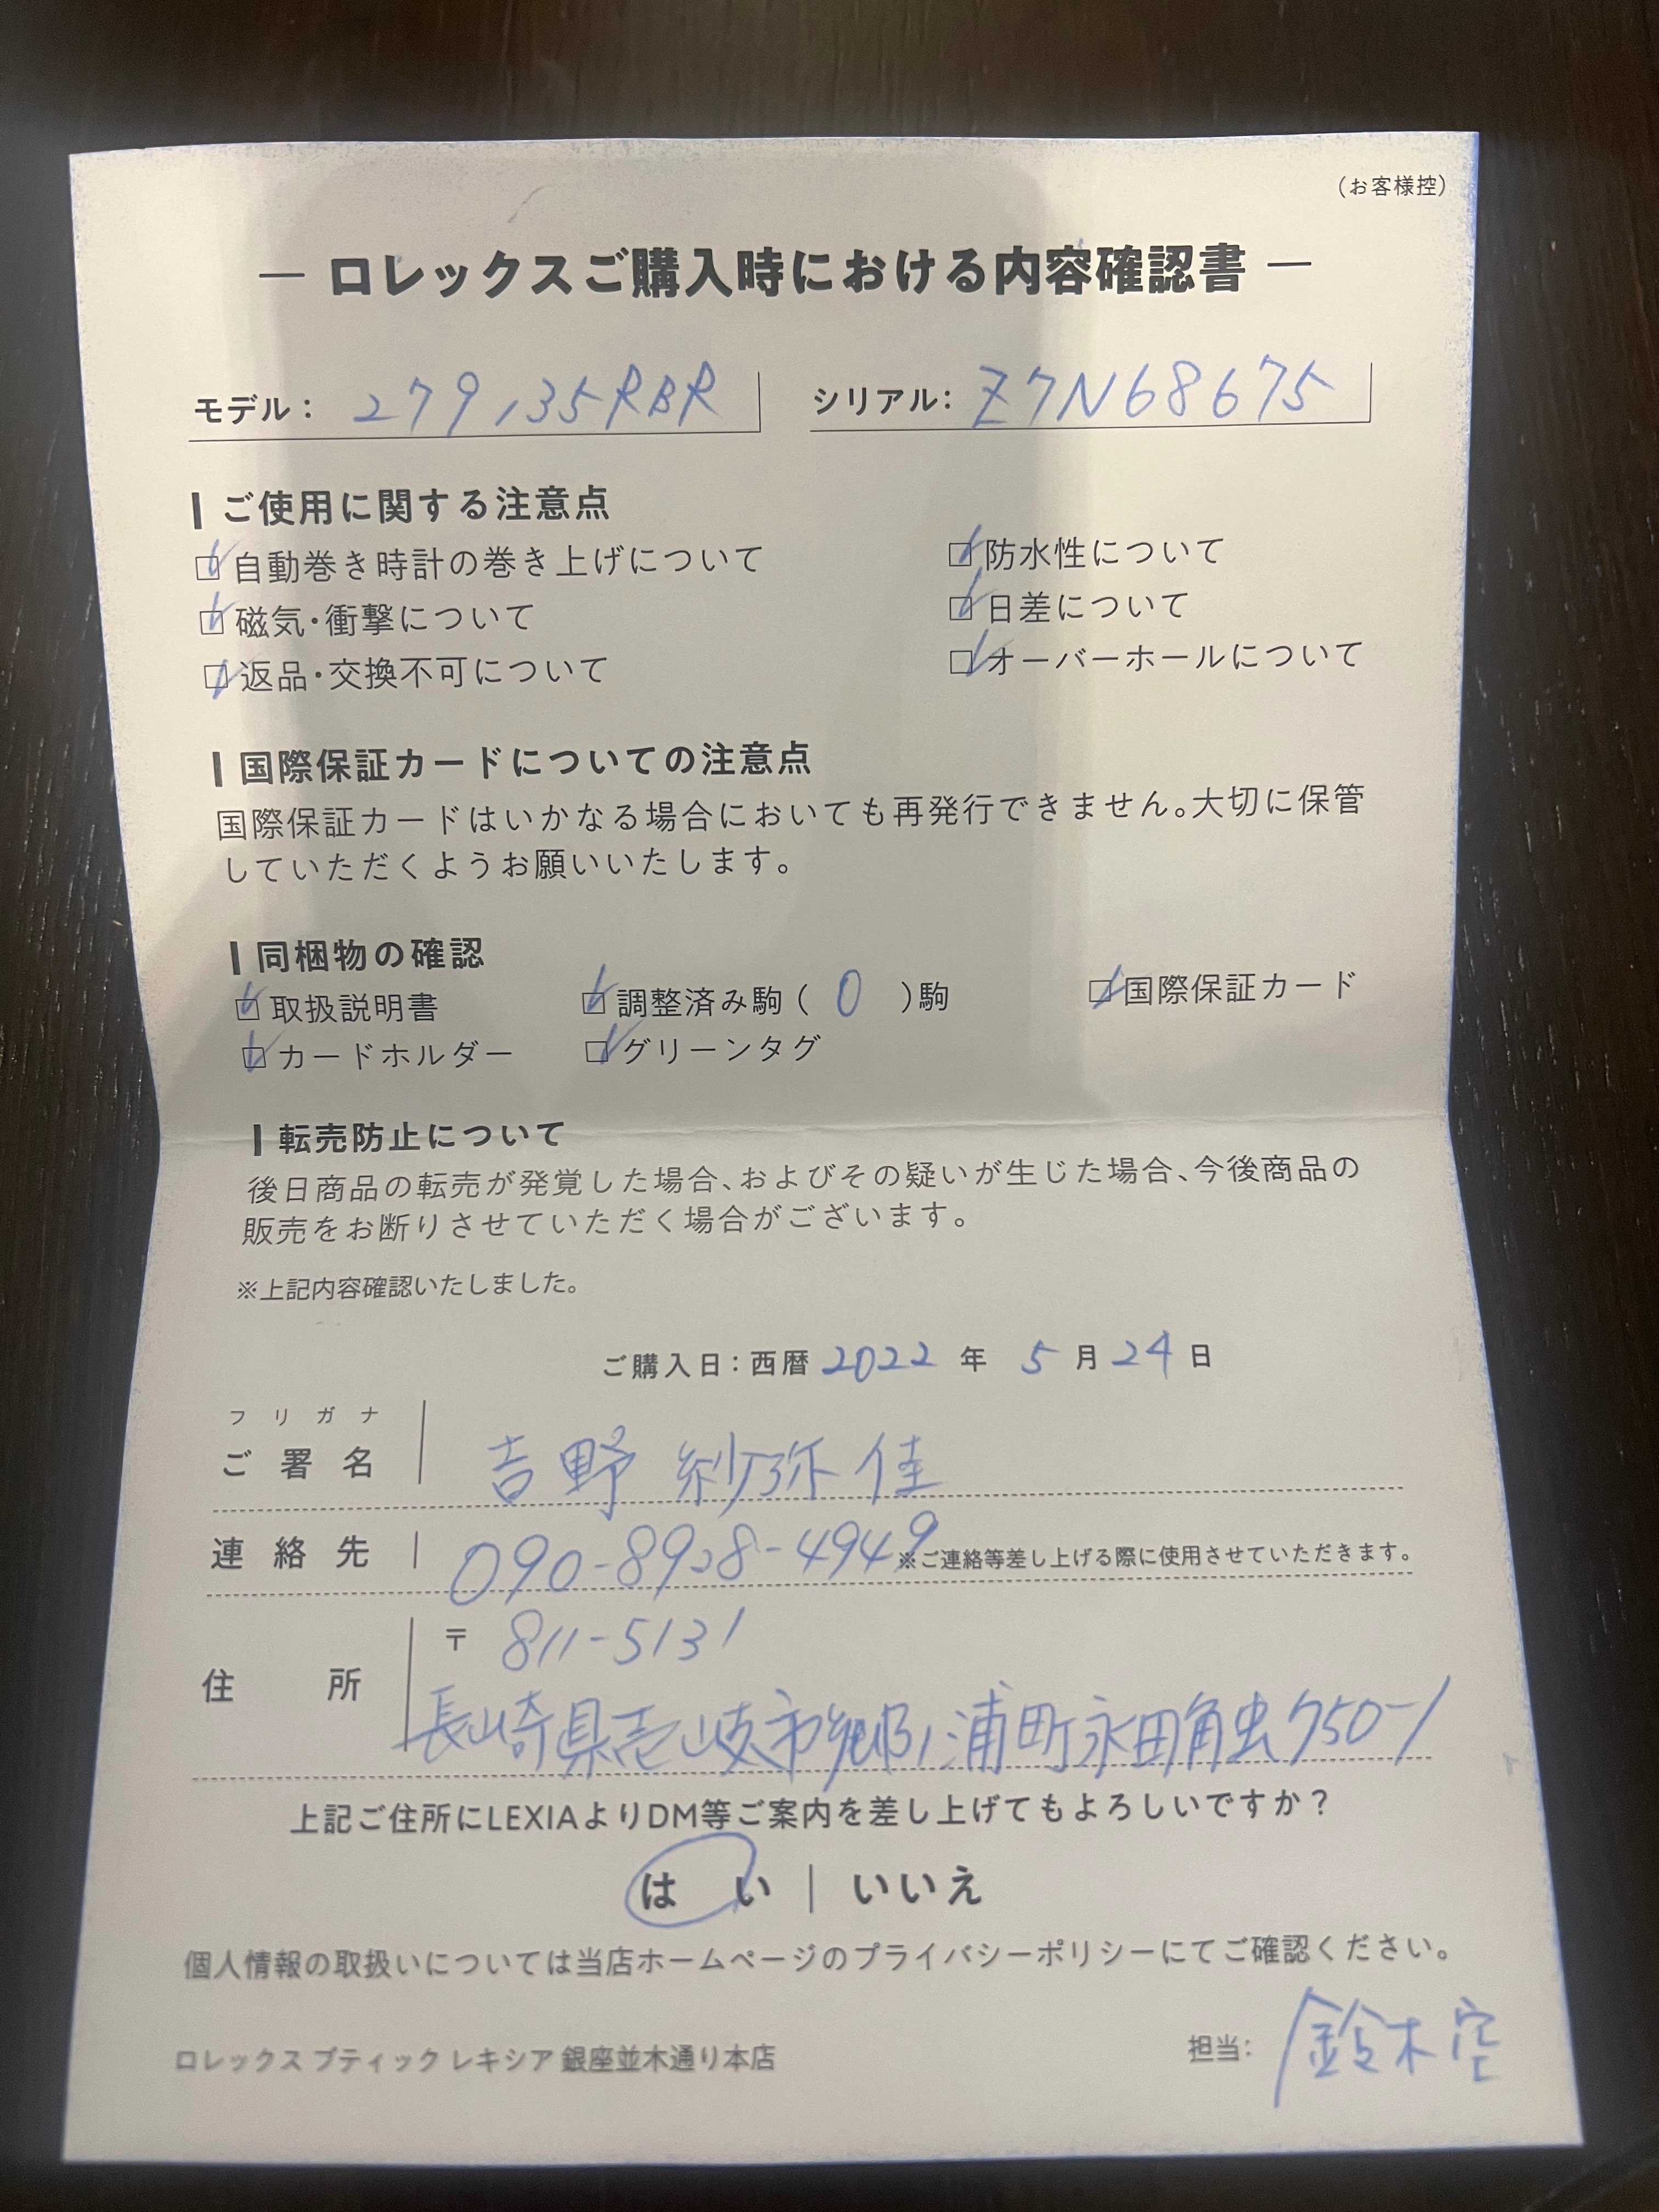 (お客様控)
― ロレックスご購入時における内容確認書 ―
モデル: 279135RBR シリアル: Z7N68675
ご使用に関する注意点
自動巻き時計の巻き上げについて 防水性について
磁気・衝撃について 日差について
返品・交換不可について オーバーホールについて
国際保証カードについての注意点
国際保証カードはいかなる場合においても再発行できません。大切に保管
していただくようお願いいたします。
同梱物の確認
取扱説明書 調整済み駒( 0 )駒 国際保証カード
カードホルダー グリーンタグ
転売防止について
後日商品の転売が発覚した場合、およびその疑いが生じた場合、今後商品の
販売をお断りさせていただく場合がございます。
※上記内容確認いたしました。
ご購入日:西暦 2022 年 5 月 24 日
フリガナ
ご署名 吉野 紗弥佳
連絡先 090-8928-4949 ※ご連絡等差し上げる際に使用させていただきます。
〒 811-5131
住所 長崎県壱岐市郷ノ浦町永田角虫750-1
上記ご住所にLEXIAよりDM等ご案内を差し上げてもよろしいですか?
はい | いいえ
個人情報の取扱いについては当店ホームページのプライバシーポリシーにてご確認ください。
ロレックス ブティック レキシア 銀座並木通り本店 担当: 鈴木空